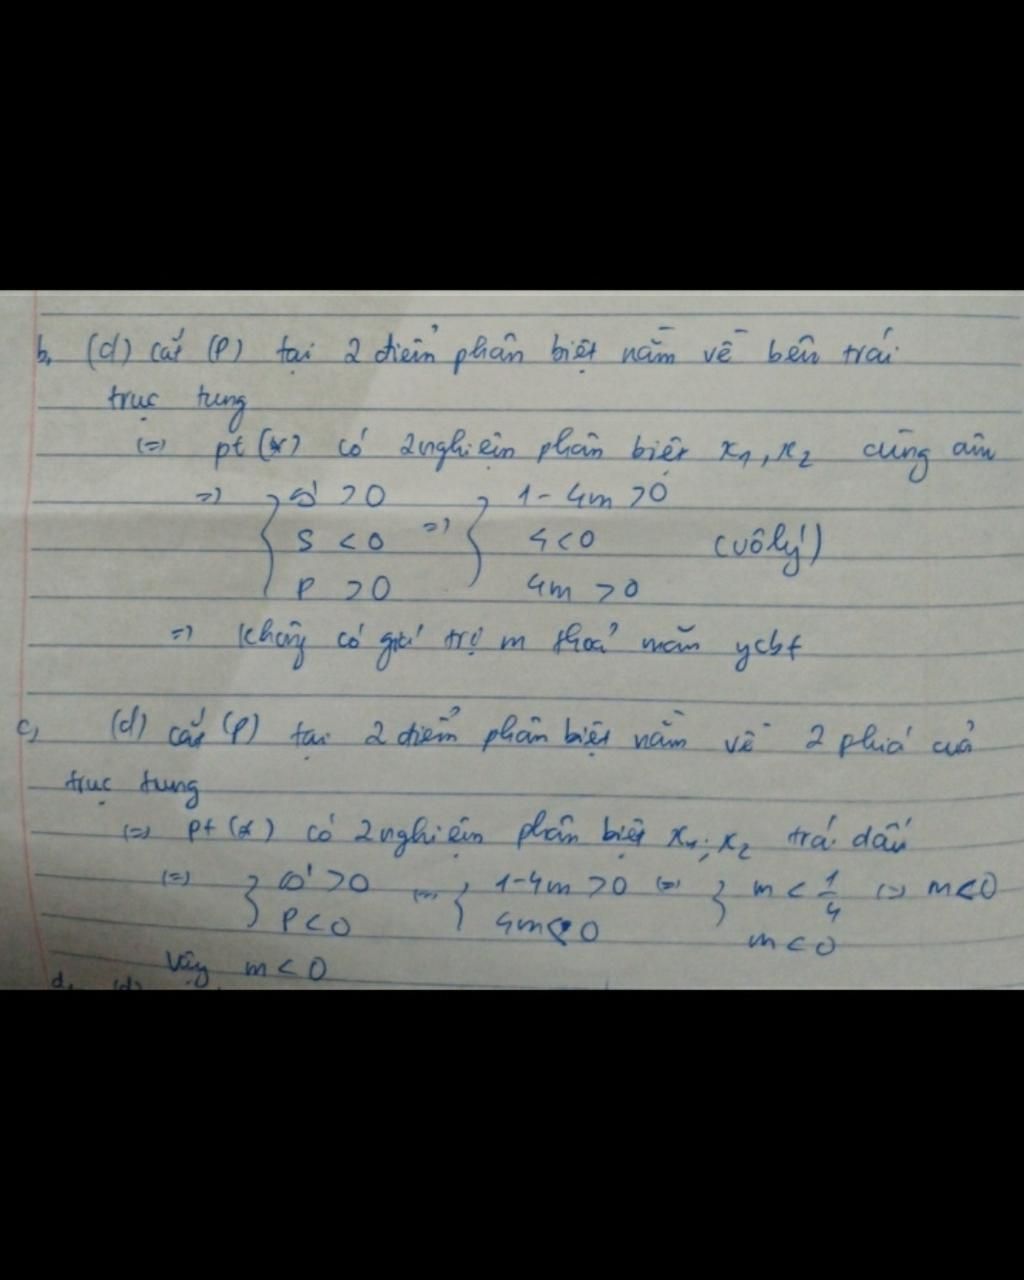 b, (d) cắt (P) tại 2 điểm phân biệt nằm về bên trái
trục tung
(=) pt (*) có 2 nghiệm phân biệt x₁, x₂ cùng âm
=) { Δ' > 0 =) { 1 - 4m > 0
S < 0 4 < 0 (vô lý)
P > 0 4m > 0
=) Không có giá trị m thoả mãn ycbt
c, (d) cắt (P) tại 2 điểm phân biệt nằm về 2 phía của
trục tung
(=) pt (*) có 2 nghiệm phân biệt x₁; x₂ trái dấu
(=) { Δ' > 0 (=) { 1 - 4m > 0 (=) { m < 1/4 (=) m < 0
P < 0 4m < 0 m < 0
Vậy m < 0